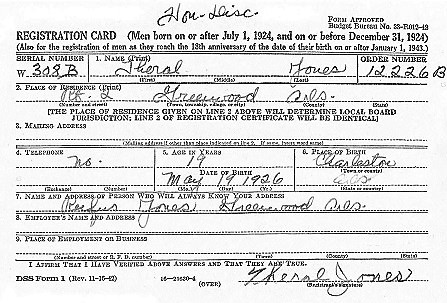 Hon. Disc.
FORM APPROVED
Budget Bureau No. 33-R012-42
REGISTRATION CARD (Men born on or after July 1, 1924, and on or before December 31, 1924)
(Also for the registration of men as they reach the 18th anniversary of the date of their birth on or after January 1, 1943.)
SERIAL NUMBER 1. NAME (Print) ORDER NUMBER
W 308 B Theral Jones 12226B
(First) (Middle) (Last)
2. PLACE OF RESIDENCE (Print)
Rt. 2 Greenwood
(Number and street) (Town, township, village, or city) (County) (State)
[THE PLACE OF RESIDENCE GIVEN ON LINE 2 ABOVE WILL DETERMINE LOCAL BOARD
JURISDICTION; LINE 2 OF REGISTRATION CERTIFICATE WILL BE IDENTICAL]
3. MAILING ADDRESS
[Mailing address if other than place indicated on line 2. If same, insert word same]
4. TELEPHONE 5. AGE IN YEARS 6. PLACE OF BIRTH
no. 19 Charleston
DATE OF BIRTH (Town or county)
May 19 1926
(Exchange) (Number) (Mo.) (Day) (Yr.) (State or country)
7. NAME AND ADDRESS OF PERSON WHO WILL ALWAYS KNOW YOUR ADDRESS
Jones Greenwood
8. EMPLOYER'S NAME AND ADDRESS
9. PLACE OF EMPLOYMENT OR BUSINESS
(Number and street or R. F. D. number) (Town) (County) (State)
I AFFIRM THAT I HAVE VERIFIED ABOVE ANSWERS AND THAT THEY ARE TRUE.
DSS Form 1 (Rev. 11-16-42) 16—21630-4 (OVER) Theral Jones
(Registrant's signature)